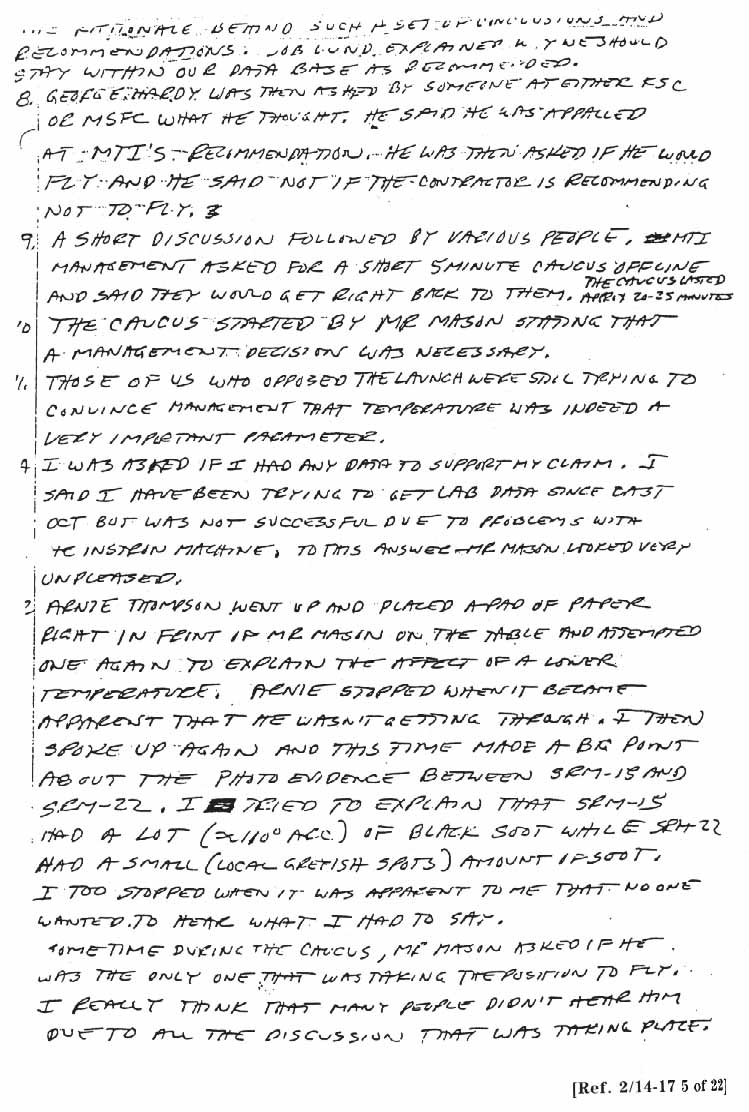 THE RATIONALE BEHIND SUCH A SET OF CONCLUSIONS AND
RECOMMENDATIONS. BOB LUND EXPLAINED WHY WE SHOULD
STAY WITHIN OUR DATA BASE AS RECOMMENDED.
8. GEORGE HARDY WAS THEN ASKED BY SOMEONE AT EITHER KSC
OR MSFC WHAT HE THOUGHT. HE SAID HE WAS APPALLED
AT MTI'S RECOMMENDATION. HE WAS THEN ASKED IF HE WOULD
FLY AND HE SAID NOT IF THE CONTRACTOR IS RECOMMENDING
NOT TO FLY.
9. A SHORT DISCUSSION FOLLOWED BY VARIOUS PEOPLE. MTI
MANAGEMENT ASKED FOR A SHORT 5 MINUTE CAUCUS OFFLINE
AND SAID THEY WOULD GET RIGHT BACK TO THEM. THE CAUCUS LASTED
APRLY 20-25 MINUTES
10 THE CAUCUS STARTED BY MR MASON STATING THAT
A MANAGEMENT DECISION WAS NECESSARY.
11. THOSE OF US WHO OPPOSED THE LAUNCH WERE STILL TRYING TO
CONVINCE MANAGEMENT THAT TEMPERATURE WAS INDEED A
VERY IMPORTANT PARAMETER.
I WAS ASKED IF I HAD ANY DATA TO SUPPORT MY CLAIM. I
SAID I HAVE BEEN TRYING TO GET LAB DATA SINCE LAST
OCT BUT WAS NOT SUCCESSFUL DUE TO PROBLEMS WITH
INSTRON MACHINE. TO THIS ANSWER MR MASON LOOKED VERY
UNPLEASED.
ARNIE THOMPSON WENT UP AND PLACED A PAD OF PAPER
RIGHT IN FRONT OF MR MASON ON THE TABLE AND ATTEMPTED
ONE AGAIN TO EXPLAIN THE AFFECT OF A LOWER
TEMPERATURE. ARNIE STOPPED WHEN IT BECAME
APPARENT THAT HE WASN'T GETTING THROUGH. I THEN
SPOKE UP AGAIN AND THIS TIME MADE A BIG POINT
ABOUT THE PHOTO EVIDENCE BETWEEN SRM-15 AND
SRM-22. I TRIED TO EXPLAIN THAT SRM-15
HAD A LOT (≈110° ARC) OF BLACK SOOT WHILE SRM-22
HAD A SMALL (LOCAL GREYISH SPOTS) AMOUNT OF SOOT.
I TOO STOPPED WHEN IT WAS APPARENT TO ME THAT NO ONE
WANTED TO HEAR WHAT I HAD TO SAY.
SOMETIME DURING THE CAUCUS, MR MASON ASKED IF HE
WAS THE ONLY ONE THAT WAS TAKING THE POSITION TO FLY.
I REALLY THINK THAT MANY PEOPLE DIDN'T HEAR HIM
DUE TO ALL THE DISCUSSION THAT WAS TAKING PLACE.
[Ref. 2/14-17 5 of 22]